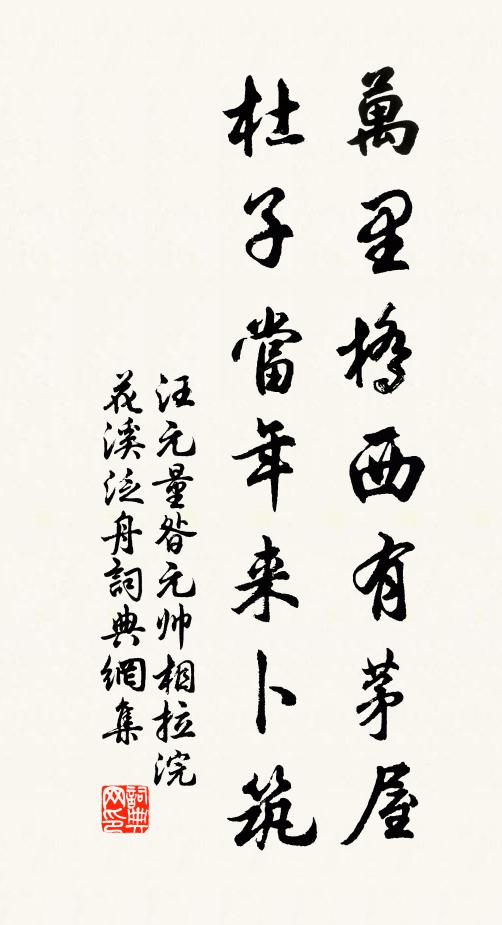 萬里橋西有茅屋
杜子當年来卜筑
汪元量昝元帅相拉浣
花溪泛舟詞典網集
詞典
网印